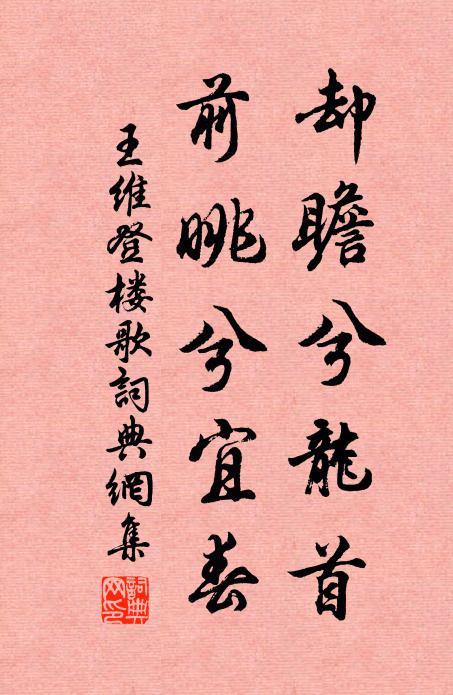 却瞻兮龍首
前眺兮宜春
王维登楼歌詞典網集
詞典网印